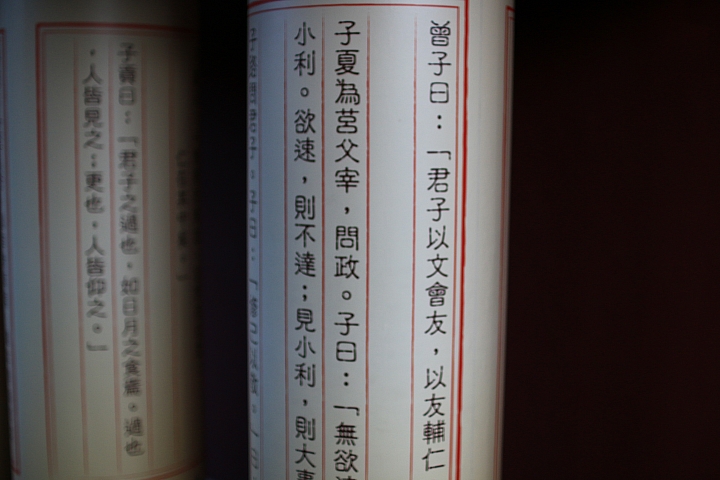 曾子曰：「君子以文會友，以友輔仁
子夏為莒父宰，問政。子曰：「無欲速
小利。欲速，則不達；見小利，則大事
子貢曰：「君子之過也，如日月之食焉。過也
，人皆見之；更也，人皆仰之。」